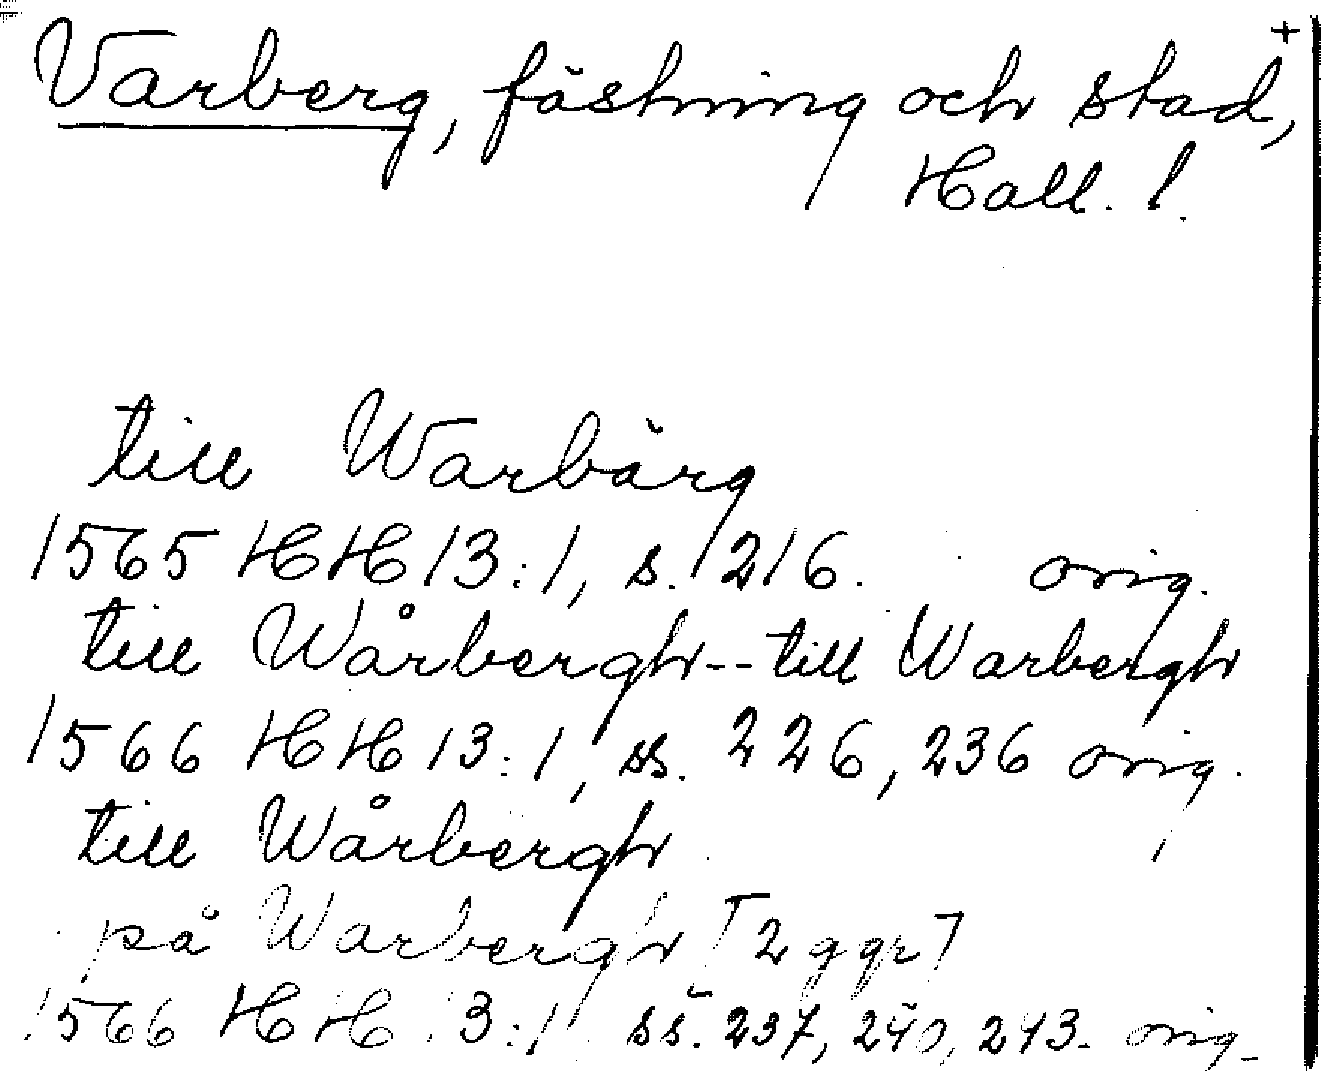 +
Varberg, fästning och stad,
Hall. l.
till Warbärg
1565 HH 13:1, s. 216. orig.
till Wårbergh -- till Warbergh
1566 HH 13:1, ss. 226, 236 orig.
till Wårbergh
på Warbergh [2 ggr]
1566 HH 13:1 ss. 237, 240, 243. orig.